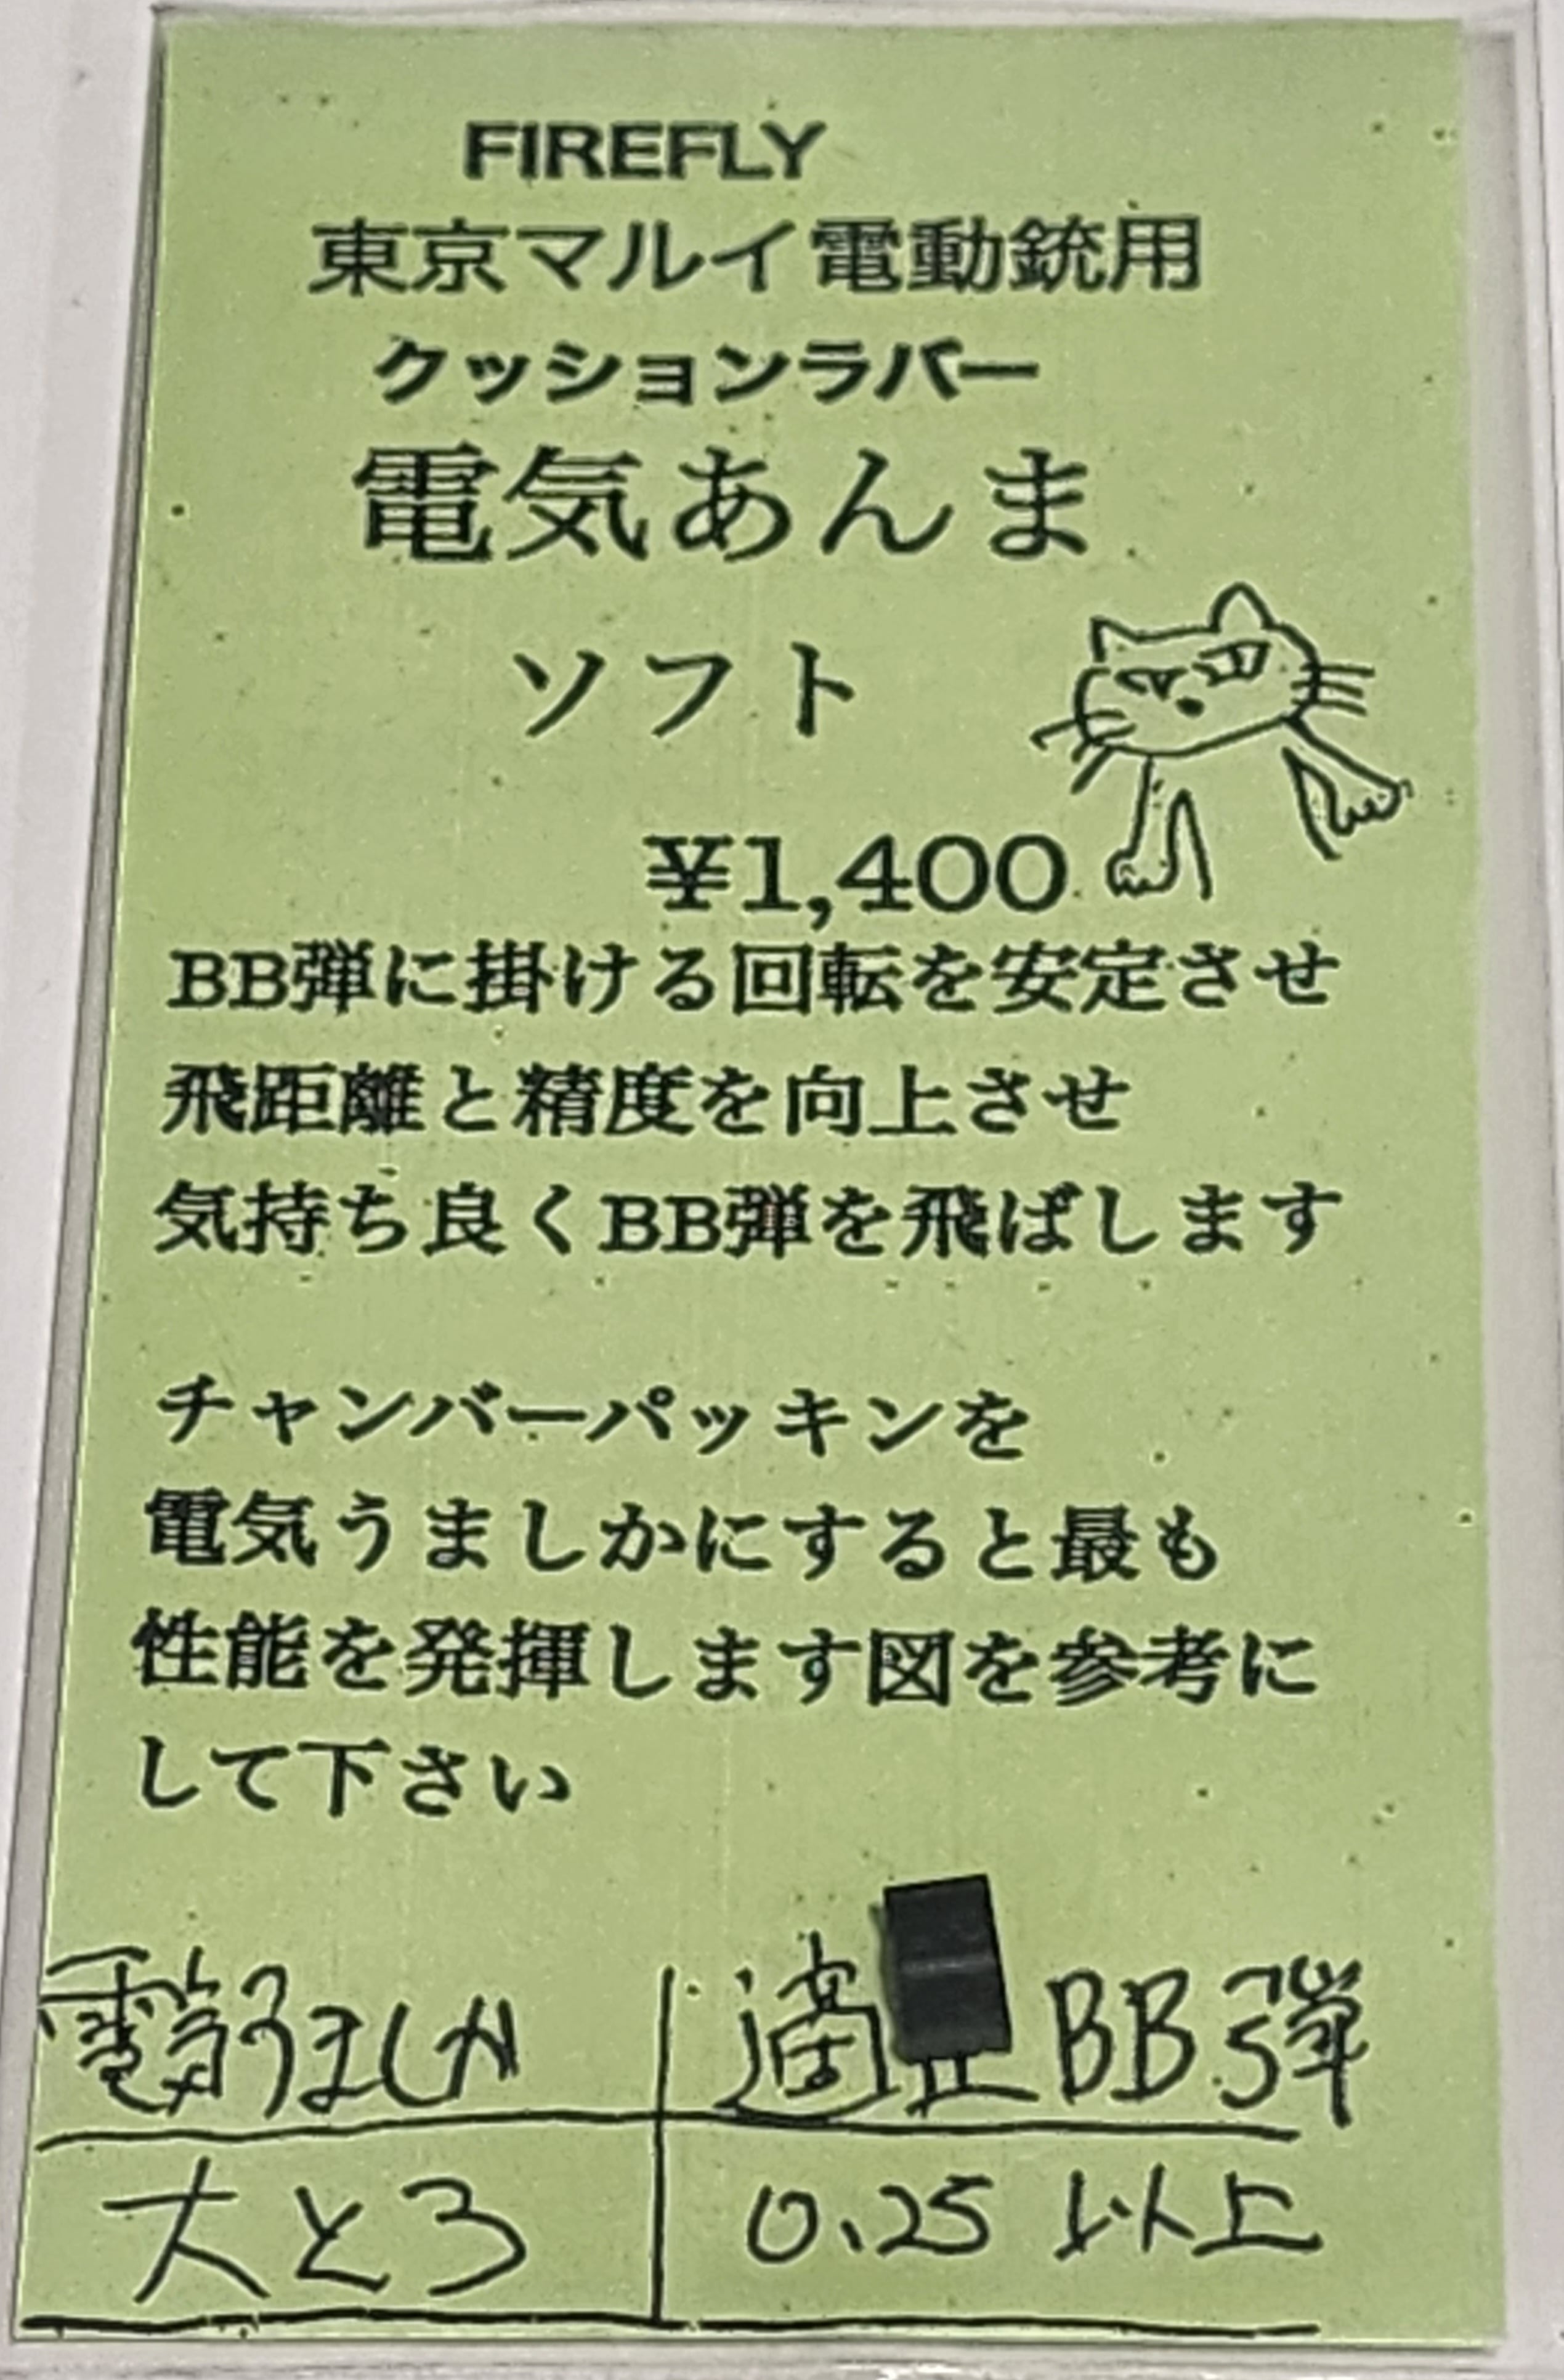 FIREFLY
東京マルイ電動銃用
クッションラバー
電気あんま
ソフト
¥1,400
BB弾に掛ける回転を安定させ
飛距離と精度を向上させ
気持ち良くBB弾を飛ばします
チャンバーパッキンを
電気うましかにすると最も
性能を発揮します図を参考に
して下さい
電気うましか 適正BB弾
大とろ 0.25以上